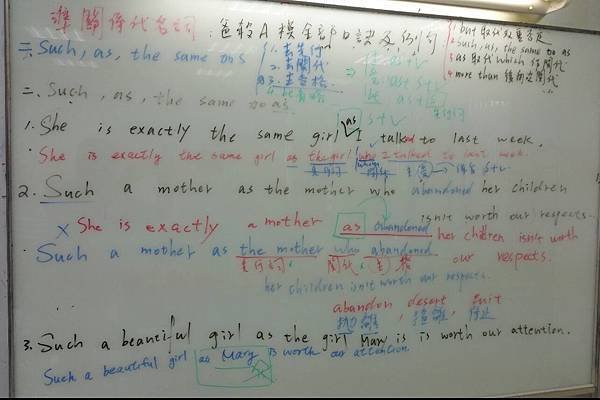 準關係代名詞:爸殺A模全部口訣及例句
1. but 取代双重否定
2. such, as, the same to as
3. as 取代 which 作關代
4. more than 後面的關代
二. Such, as, the same as
1. 去先行
2. 去關代
3. 去主格
二. Such, as, the same to as
1. She is exactly the same girl as I talked to last week.
She is exactly the same girl as the girl who I talked to last week.
2. Such a mother as the mother who abandoned her children isn't worth our respects.
x She is exactly a mother as abandoned her children isn't worth our respects.
Such a mother as the mother who abandoned her children isn't worth our respects.
先行詞, 關代, 主格
abandon, desert, quit
拋離, 離, 停止
3. Such a beautiful girl as the girl Mary is is worth our attention.
Such a beautiful girl as Mary is worth our attention